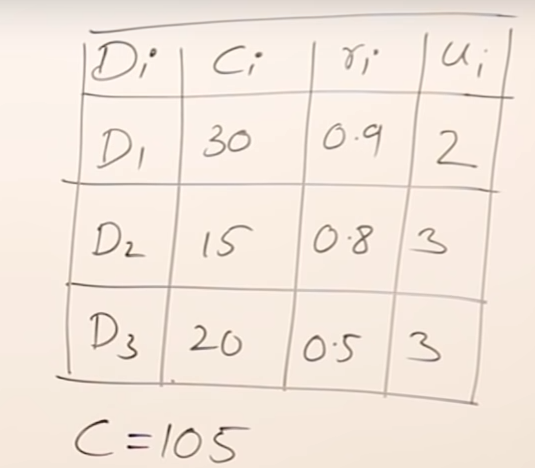 Di Ci ri ui
D1 30 0.9 2
D2 15 0.8 3
D3 20 0.5 3
C=105